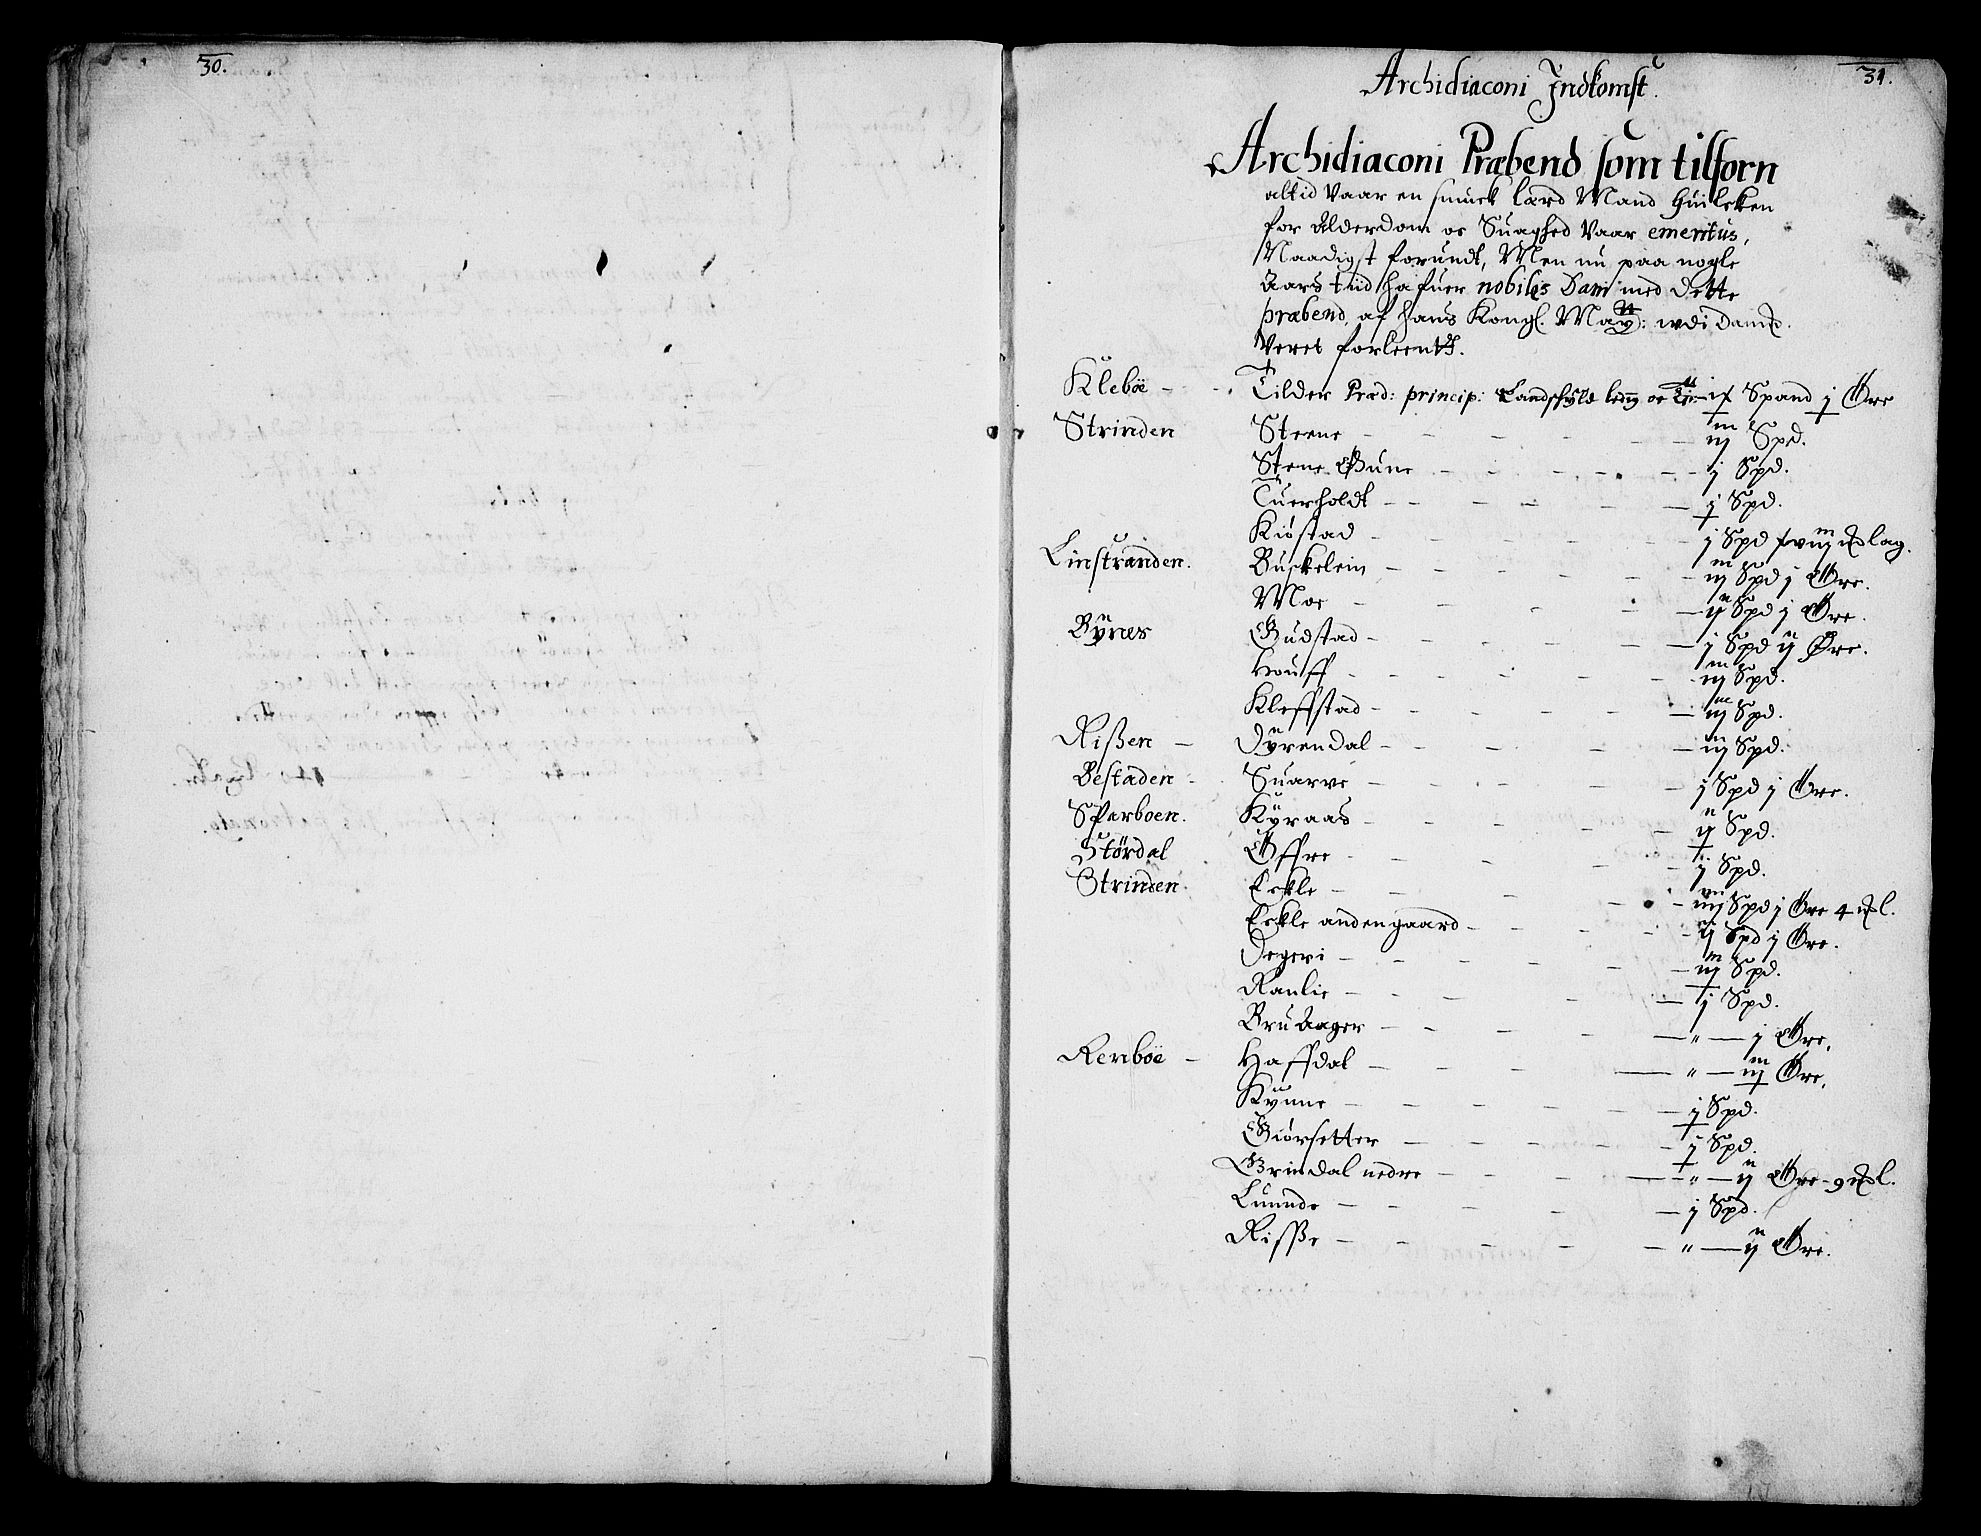 30.
31.
Archidiaconi Indkomst.
Archidiaconi Præbend som tilforn
altid Vaar en smuck lærd Mand huilcken
for Alderdom oc Suaghed Vaar emeritus,
Naadigst forundt, Men nu paa nogle
Aars tiid hafuer nobiles Dani med dette
præbend af hans Kongl. May: udi Danm
Veret forleent.
Klebøe - Tilder Præd: princip: Landskyld leding oc - Spand j Øre
Strinden Steene - iij Spd.
Steene Øune - j Spd.
Tuerholdt - j Spd.
Kiøstad - j Spd lag.
Linstranden. Buskelein - iij Spd j Øre.
Moe - ij Spd j Øre.
Bynes Gudstad - j Spd ij Øre.
Houff - iij Spd.
Kleffstad - iij Spd.
Rißen - Dyrendal - iij Spd.
Bestaden - Suarve - j Spd j Øre.
Sparboen. Kyraas - ij Spd.
Størdal Øffre - j Spd.
Strinden Eckle - Spd j Øre 4
Eckle andengaard - ij Spd j Øre.
Degeri - iij Spd.
Ranlie - j Spd.
Bru Aager - " - j Øre.
Renboe - Haffdal - " - iij Øre.
Kynne - j Spd.
Giørsetter - j Spd.
Grindal nedre - " - ij Øre - 9
Luunde - j Spd.
Risße - " - ij Øre.